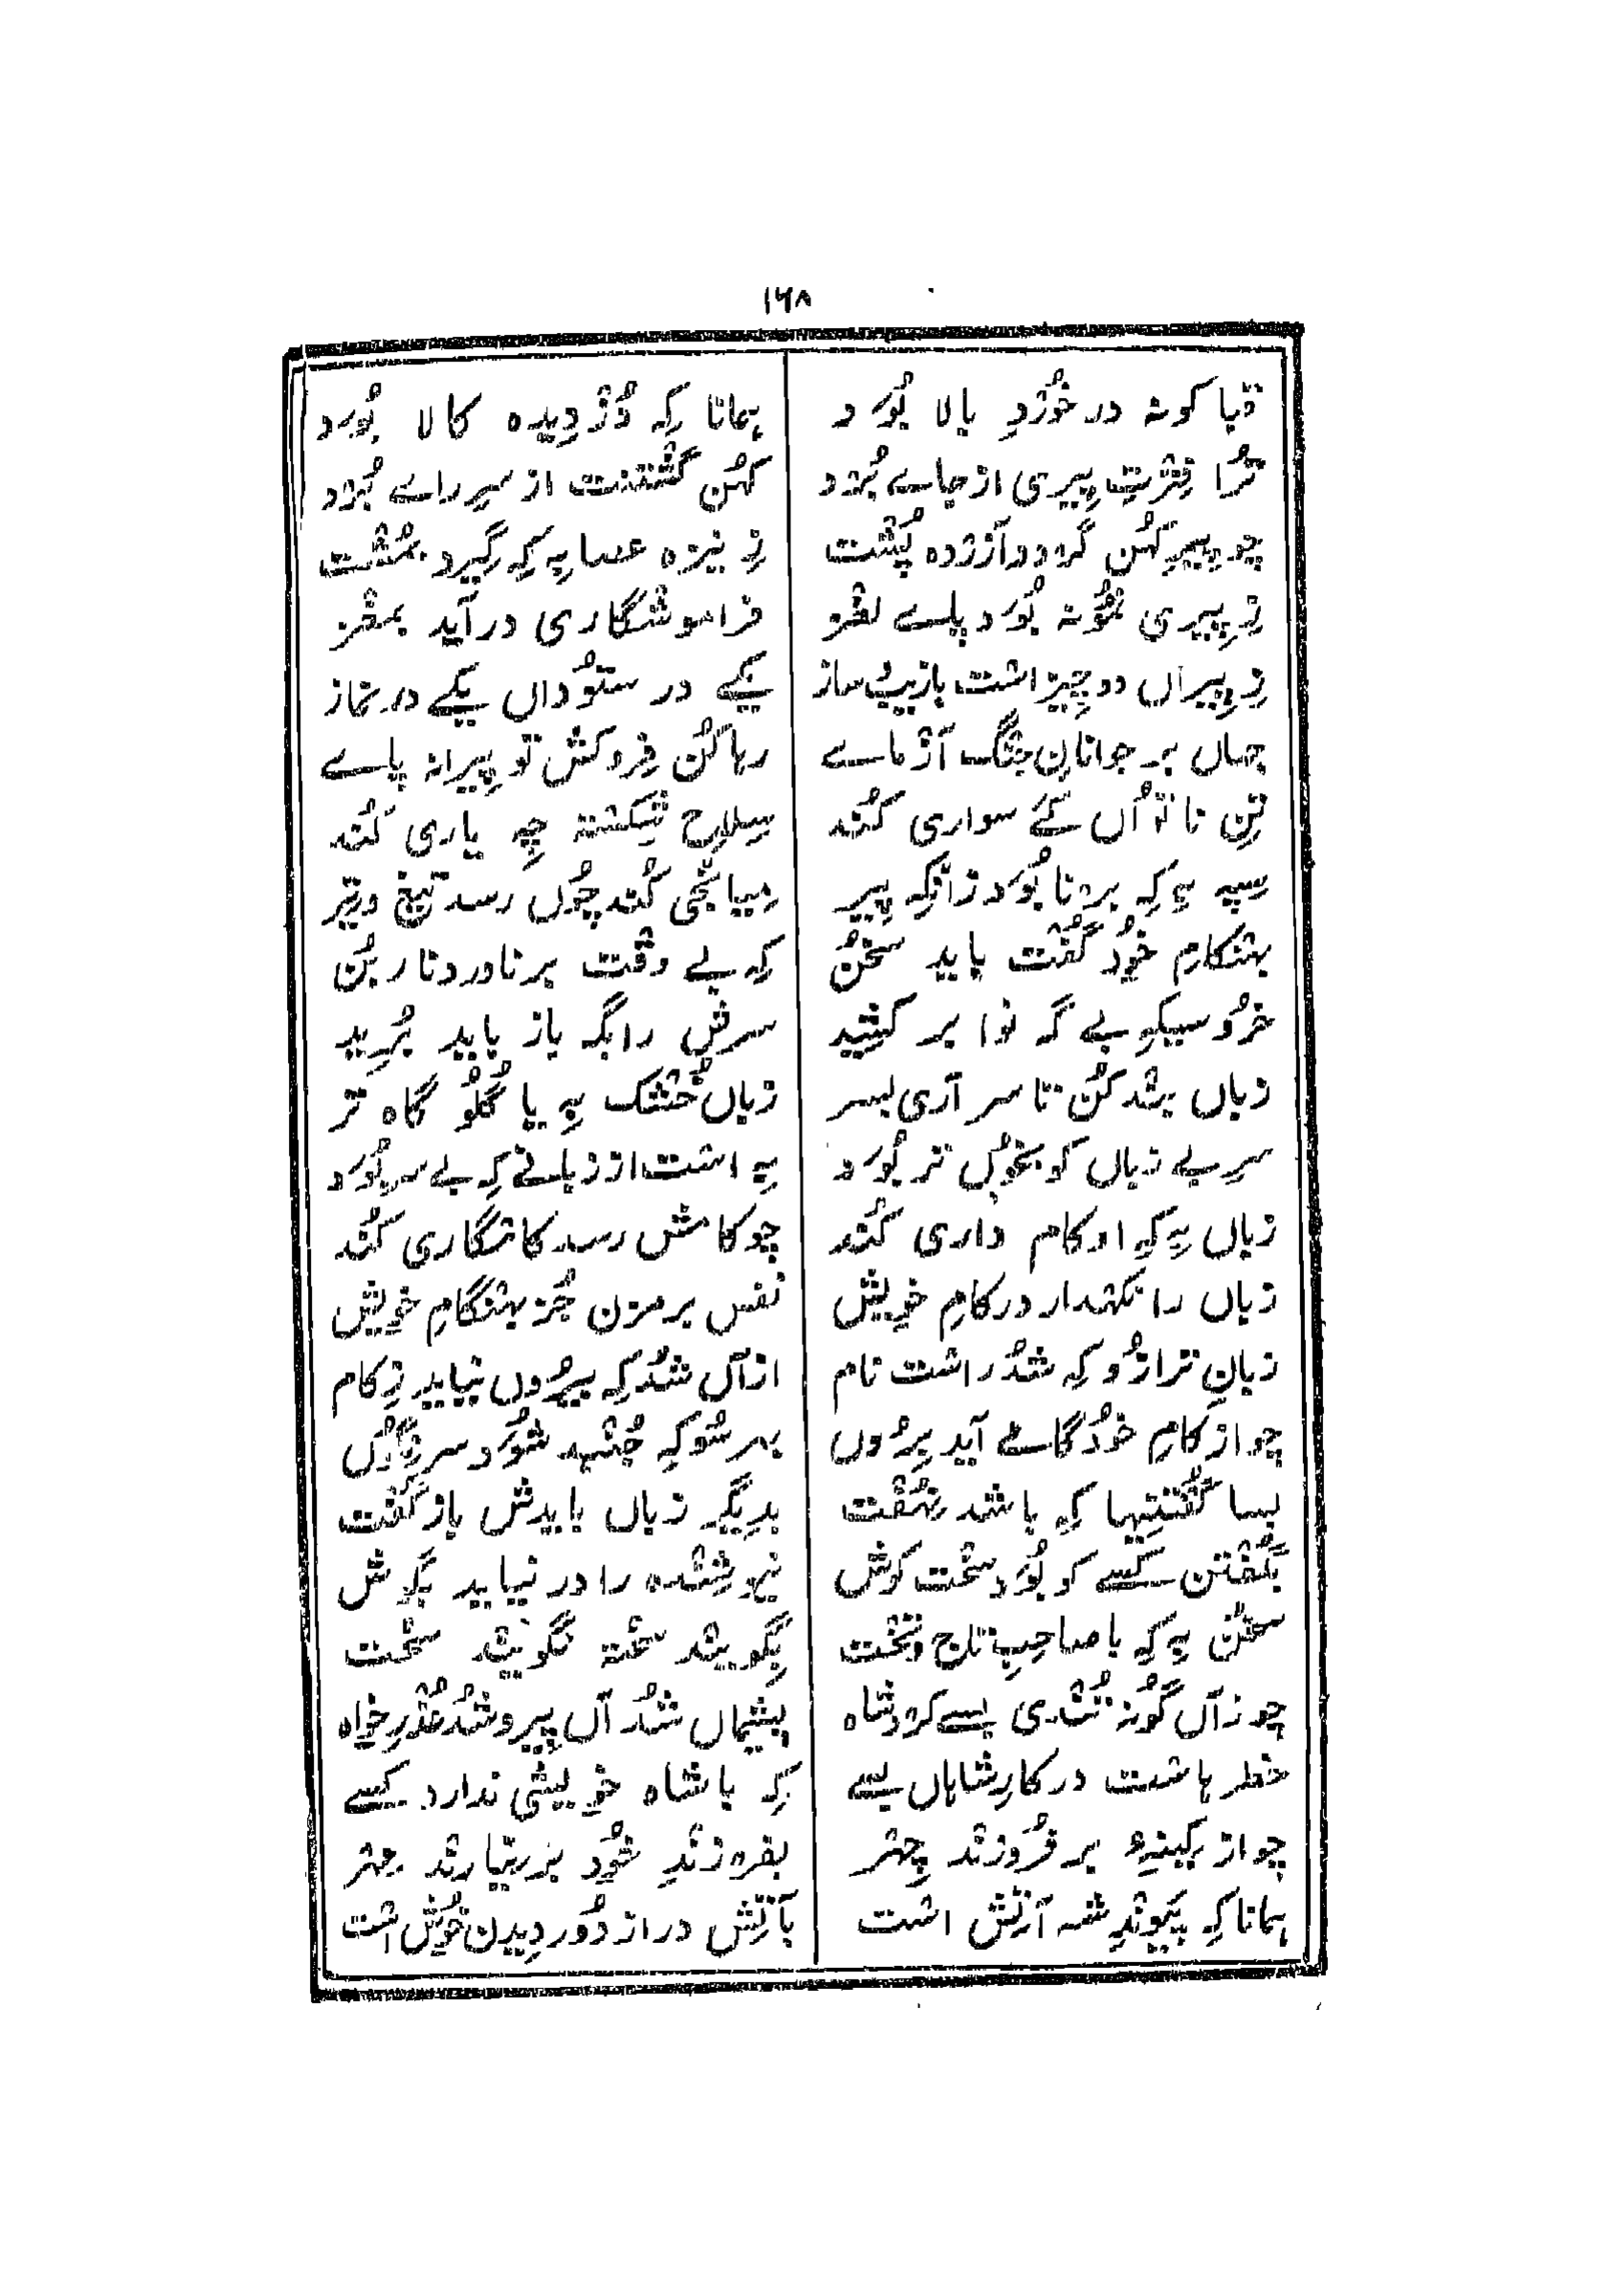 ۱۶۸
قبا کو نه در خوُرْدِ بالا بُوَد همانا کِه دُزْدِیده کالا بُوَد
ترُا فِترتِ پِیری از جاے بُرْد کهُن گشتنت از سرِ راے بُرْد
چو پیِرِ کهُن گردد آزرْده پُشْت زِ نیزه عصا بِه کِه گِیرد بمُشْت
زِ پِیری نگُونه بُوَد پاے لغْز فراموشگاری درآید بمغْز
زِ پِیراں دو چِیز اسْت بازیبْ ساز یکے در ستوُداں یکے در نماز
جہاں بر جوانانِ جنْگ آزْماے رہا کُن فِروکَش تو پِیرانه پاے
تنِ ناتوُاں کَے سواری کُند سِلاحِ شِکسْته چِه یاری کُند
سِپه بِه کِه برنا بُوَد زانکِه پِیر مِیانْجی کُند چوُں رسد تیغ و تِیر
بہنْگامِ خوُد گُفْت باید سخُن کِه بے وقْت بر ناورد نار بُن
خرُوسیکِه بے گَه نوا بر کشِید سرش را بگَه باز باید بُرِید
زباں بنْد کُن تا سر آری بسر زباں خُشْک بِه یا گُلوُ گاه تر
سرِ بے زباں کو بخوُں تر بُوَد بِه اسْت از زبانے کِه بے سر بُوَد
زباں بِه کِه او کام داری کُند چو کامش رسد کامگاری کُند
زباں را نگہدار در کامِ خوِیش نفس بر مزن جُز بہنْگامِ خوِیش
زبانِ ترازوُ کِه شُد راسْت نام از آں شُد کِه بیرُوں نیاید زِ کام
چو از کامِ خوُد گامے آید برُوں بہر سوُ کِه جُنْبد شوَد سرنِگوُں
بسا گُفْتنِیہا کِه باشد نہُفْت بدِیگر زباں بایدش باز گُفْت
بگُفْتن کسے کو بُوَد سخْت کوش نیوشنْده را در نیاید بگوش
سخُن بِه کِه با صاحِبِ تاج و تخْت بِگویند سخْته نگویند سخْت
چو زآں گوُنه تُنْدی بسے کرد شاه پشِیماں شُد آں پِیر و شُد عُذْر خواه
خطر ہاسْت در کارِ شاہاں بسے کِه با شاه خوِیشی ندارد کسے
چو از کِینۂ بر فُروزنْد چِہْر بفرزنْدِ خوُد بر نیارنْد مِہْر
ہمانا کِه پیَونْدِ شه آتِش اسْت بآتِش در از دوُر دِیدن خوُش اسْت